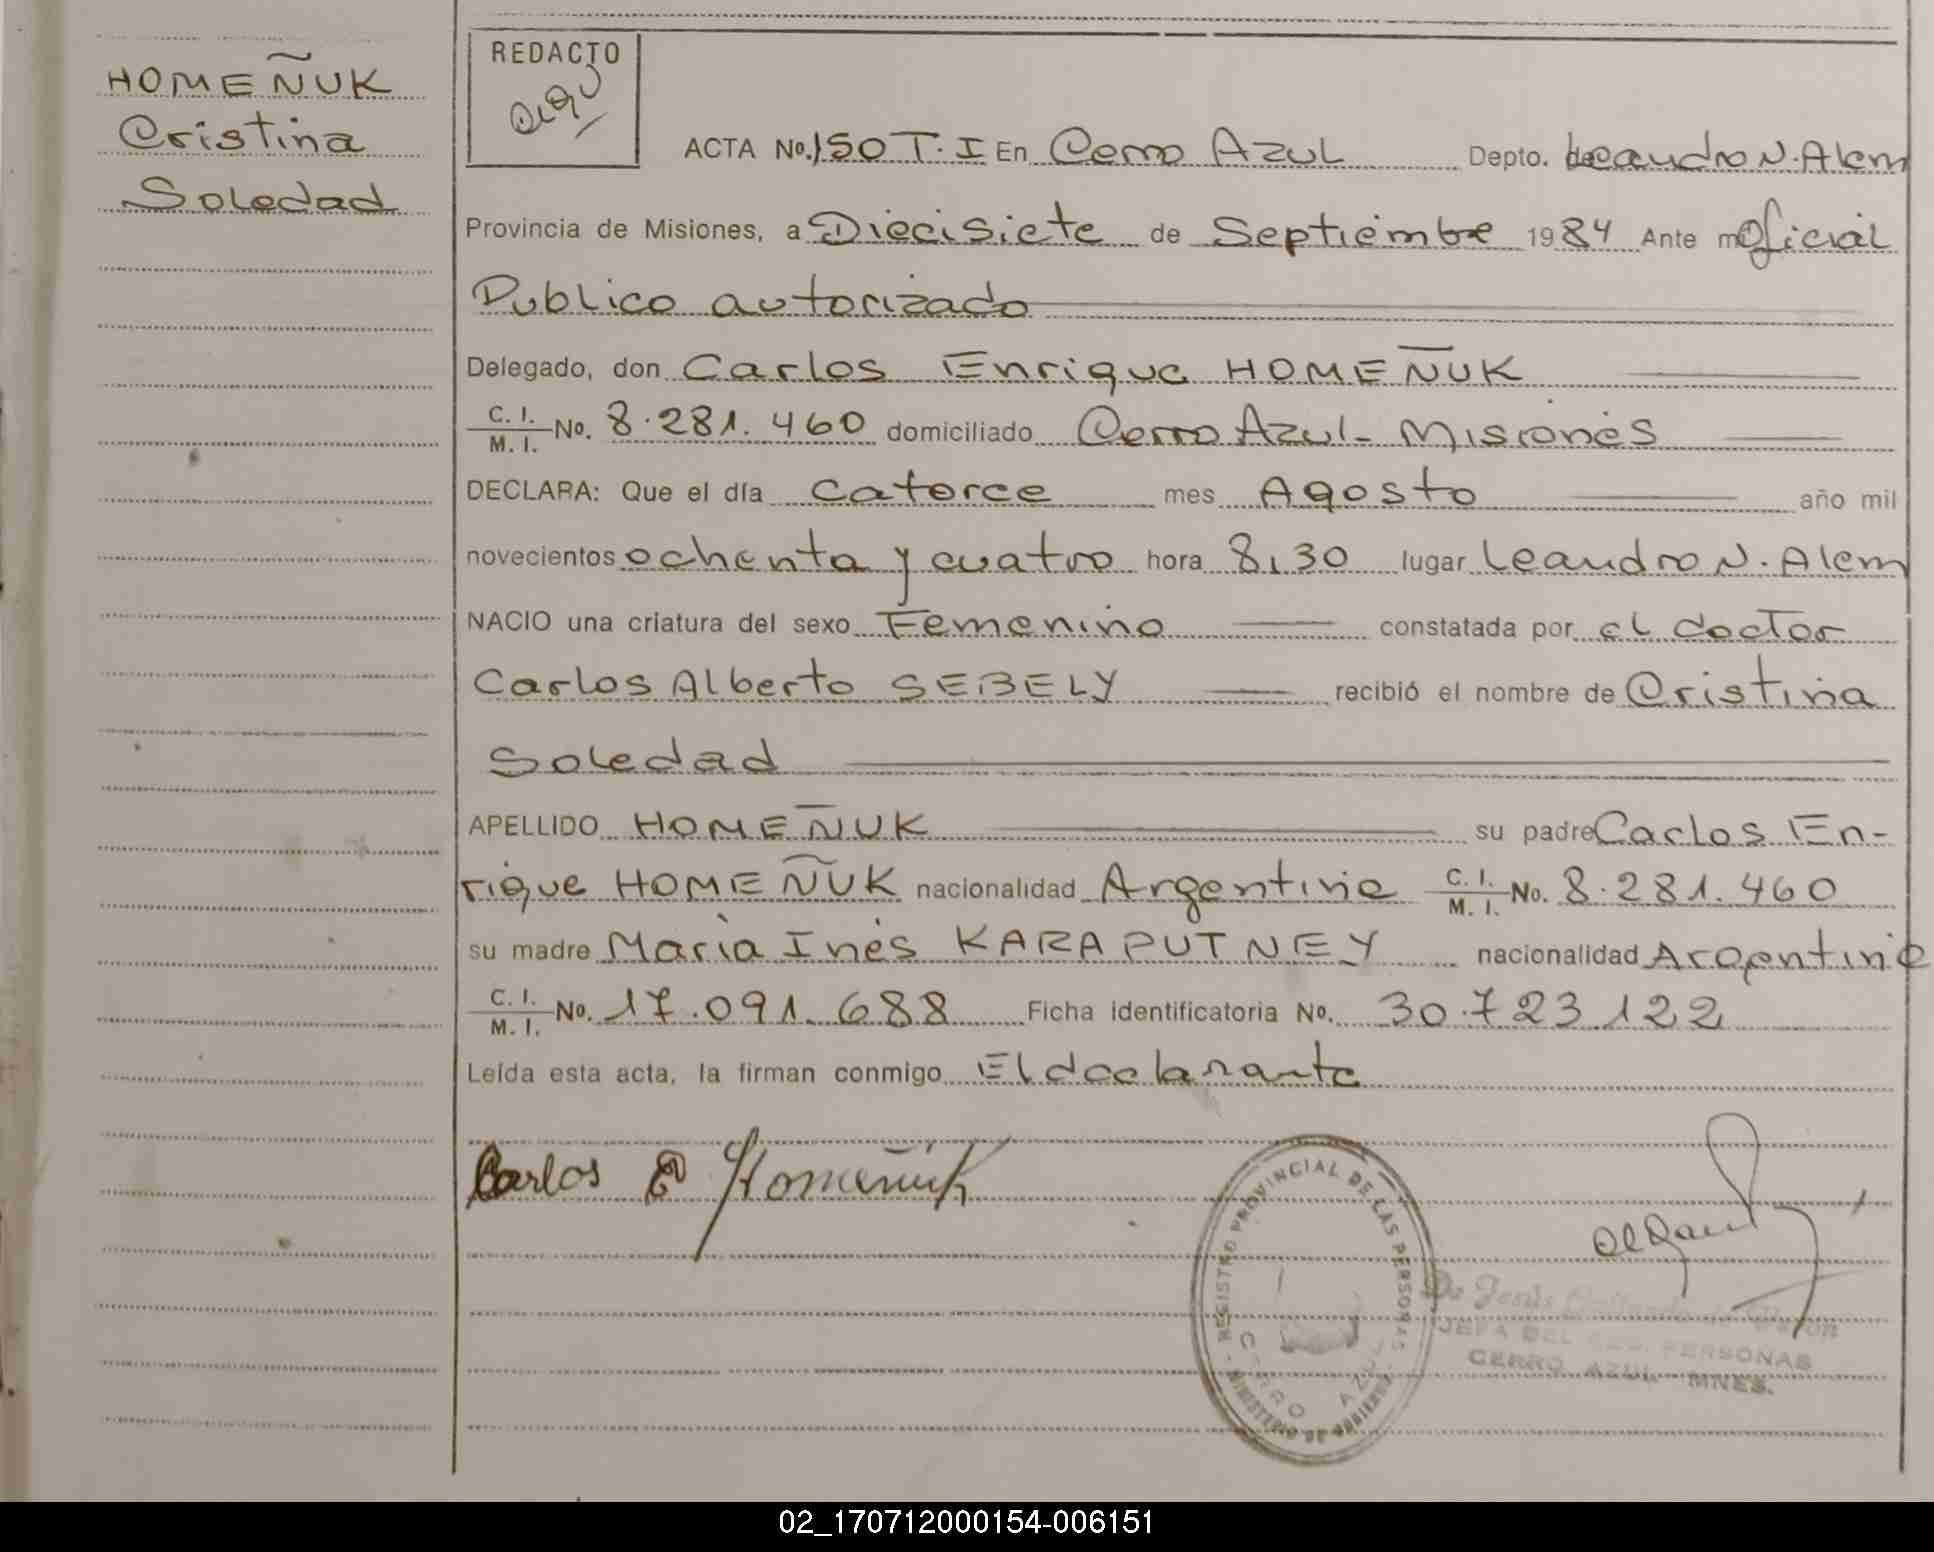 HOMEÑUK
Cristina
Soledad
REDACTO
ACTA No. 150 T. I En Cerro AZUL Depto. Leandro N. Alem
Provincia de Misiones, a Diecisiete de Septiembre 1984 Ante mi Oficial
Publico autorizado
Delegado, don Carlos Enrique HOMEÑUK
C. I. / M. I. No. 8.281.460 domiciliado Cerro Azul - Misiones
DECLARA: Que el día catorce mes Agosto año mil
novecientos ochenta y cuatro hora 8,30 lugar Leandro N. Alem
NACIO una criatura del sexo Femenino constatada por el doctor
Carlos Alberto SEBELY recibió el nombre de Cristina
Soledad
APELLIDO HOMEÑUK su padre Carlos En-
rique HOMEÑUK nacionalidad Argentina C. I. / M. I. No. 8.281.460
su madre María Inés KARAPUTNEY nacionalidad Argentina
C. I. / M. I. No. 17.091.688 Ficha identificatoria No. 30.723.122
Leída esta acta, la firman conmigo El declarante
Carlos E Homeñuk
REGISTRO PROVINCIAL DE LAS PERSONAS
MINISTERIO DE GOBIERNO
CERRO AZUL
Jesús
JEFA DEL PERSONAS
CERRO AZUL - MNES.
02_170712000154-006151